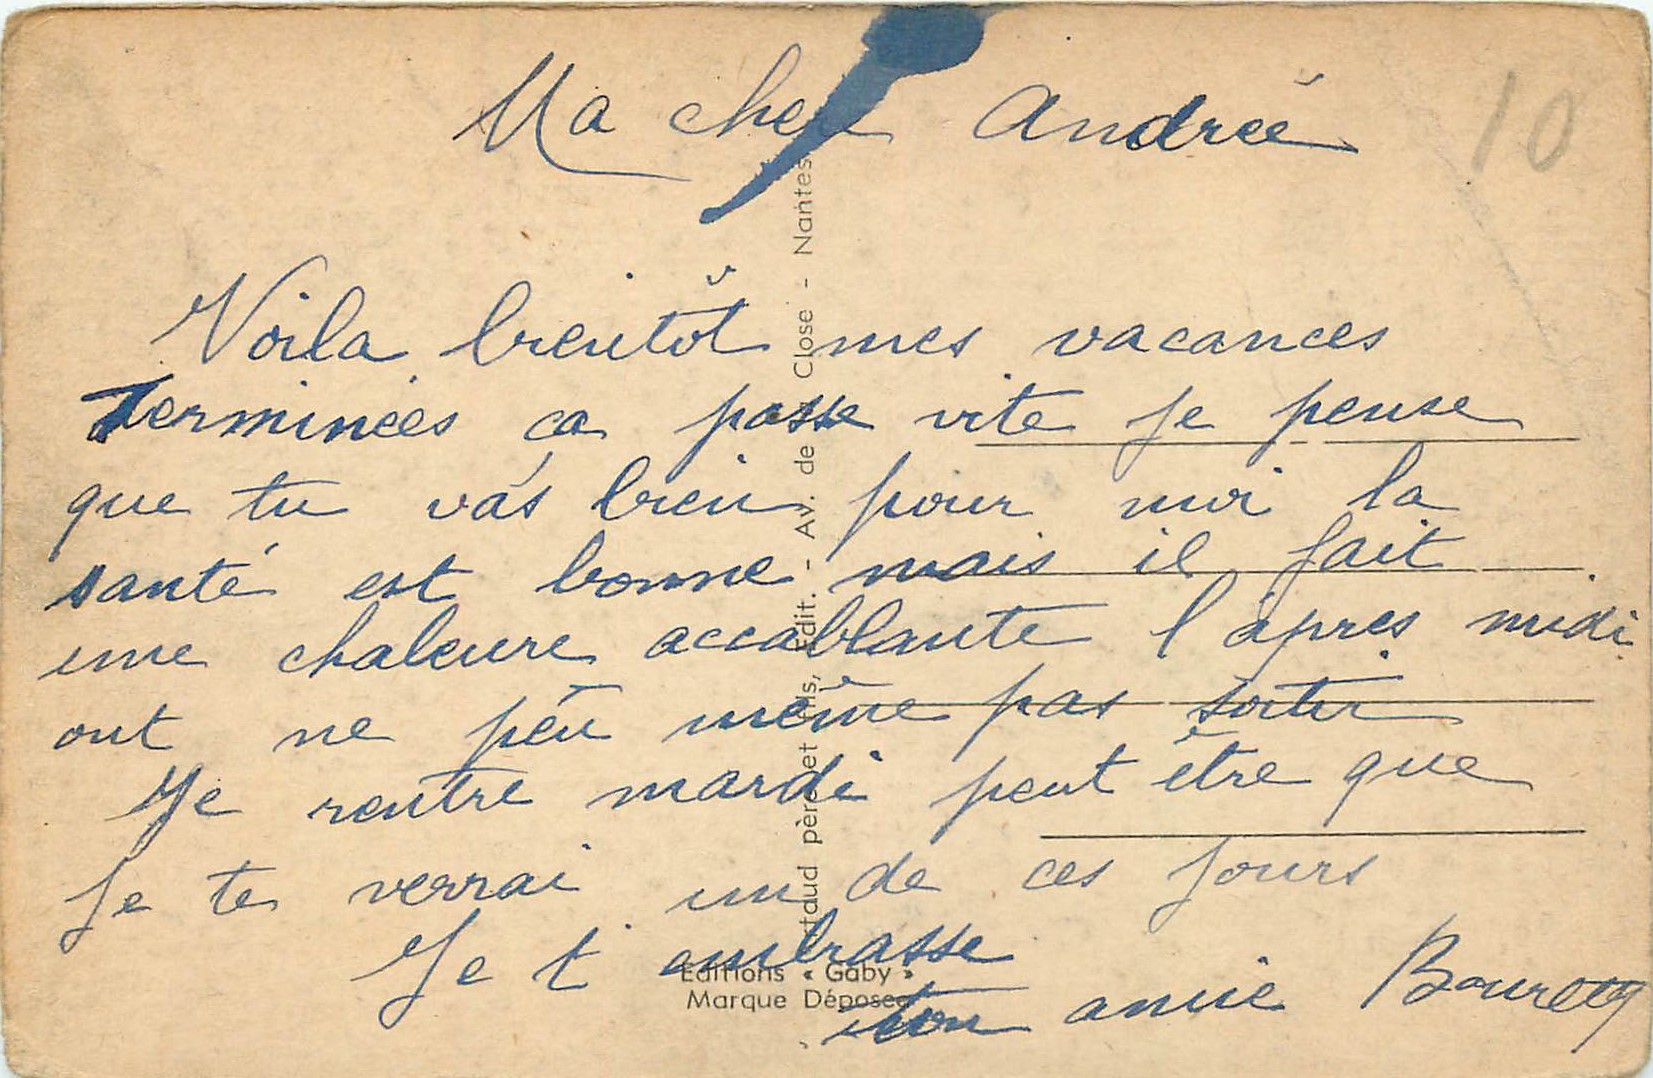 Ma cher Andrée
10
Voila bientôt mes vacances
Terminées ca passe vite je pense
que tu vás bien pour moi la
santé est bonne mais il fait
une chaleure accablante l'àpres midi
ont ne peu même pas sortir
Je rentre mardi peut être que
Je te verrai un de ces jours
Je t'embrasse
ton amie
taud père et fils, Edit. - Av. de Close - Nantes
Editions « Gaby »
Marque Déposée